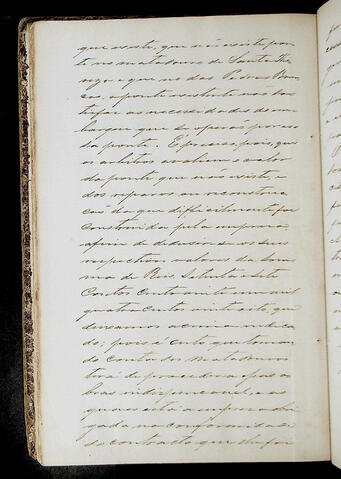 que existe, que não existe pon
te no matadouro de Santa The
reza e que no das Pedras Bran
cas, a ponte existente não sa
tisfaz as necessidades de em
barque que se operão por es
sa ponte. É preciso, pois, que
os arbitros avaliem o valor
da ponte que não existe, e
dos reparos ou reconstruc
ções da que difficilmente foi
construida pela empreza
afim de deduzirem os seus
respectivos valores da som
ma de Reis, Setenta e Sete
Contos cento e vinte mil
quatro centos vinte oito, que
deixamos acima indica
do; pois é certo que toman
do conta dos Matadouros
terá de proceder a essas o
bras indispensaveis, e as
quaes está a empreza obri
gada na conformidade
do contracto que a